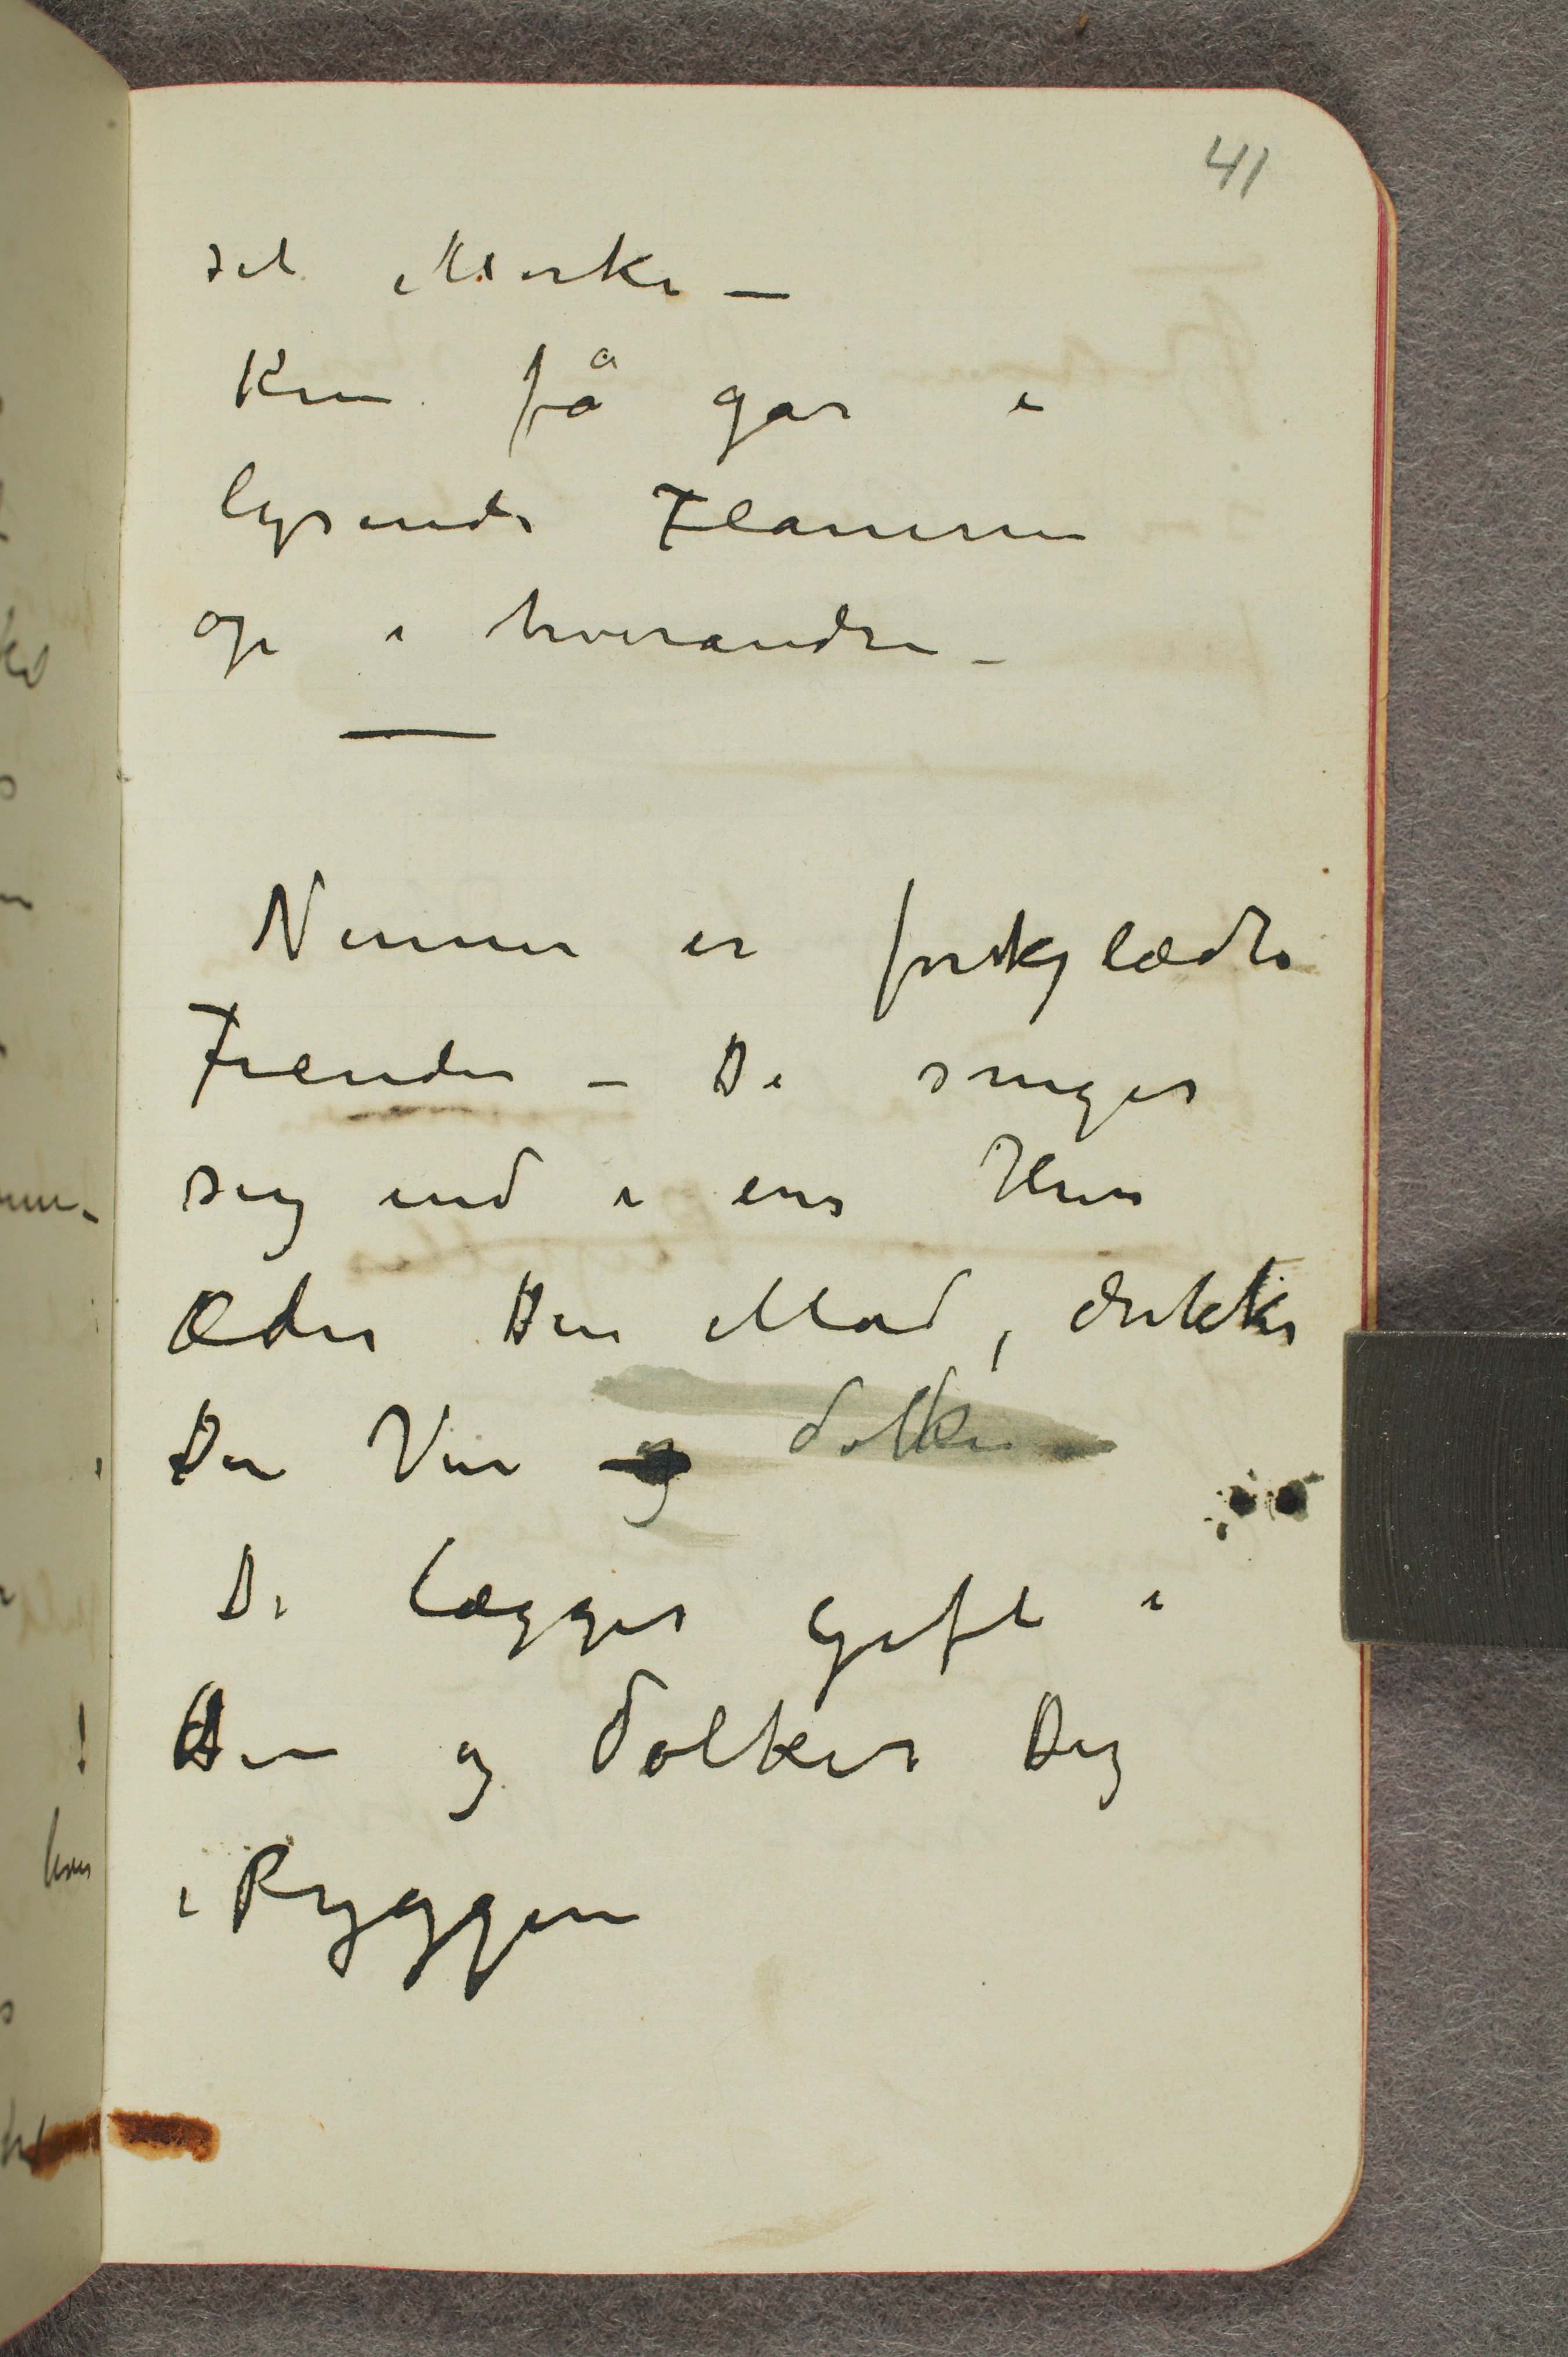 41
sit Mørke –
Kun få går i
lysende Flammer
op i hverandre –
Venner er forklædte
Fiender – De sniger
sig ind i ens Hus
Æder Din Mad, drikker
Din Vin og dolker
De lægger Gift i
den og dolker Dig
i Ryggen